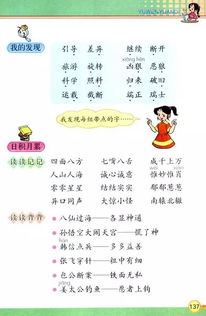 我的发现
引导 差异 继续 断开
xiōng hěn
旅游 旋转 凶狠 恶狠
科学 照料 归来 破旧
运载 截断 端正 瑞士
我发现每组带点的字……
日积月累
读读记记
四面八方 七嘴八舌 成千上万
人山人海 诚心诚意 惟妙惟肖
零零星星 结结实实 郁郁葱葱
异口同声 大同小异 南辕北辙
读读背背
八仙过海——各显神通
孙悟空大闹天宫——慌了神
hán
韩信点兵——多多益善
张飞穿针——粗中有细
包公断案——铁面无私
jiāng
姜太公钓鱼——愿者上钩
137